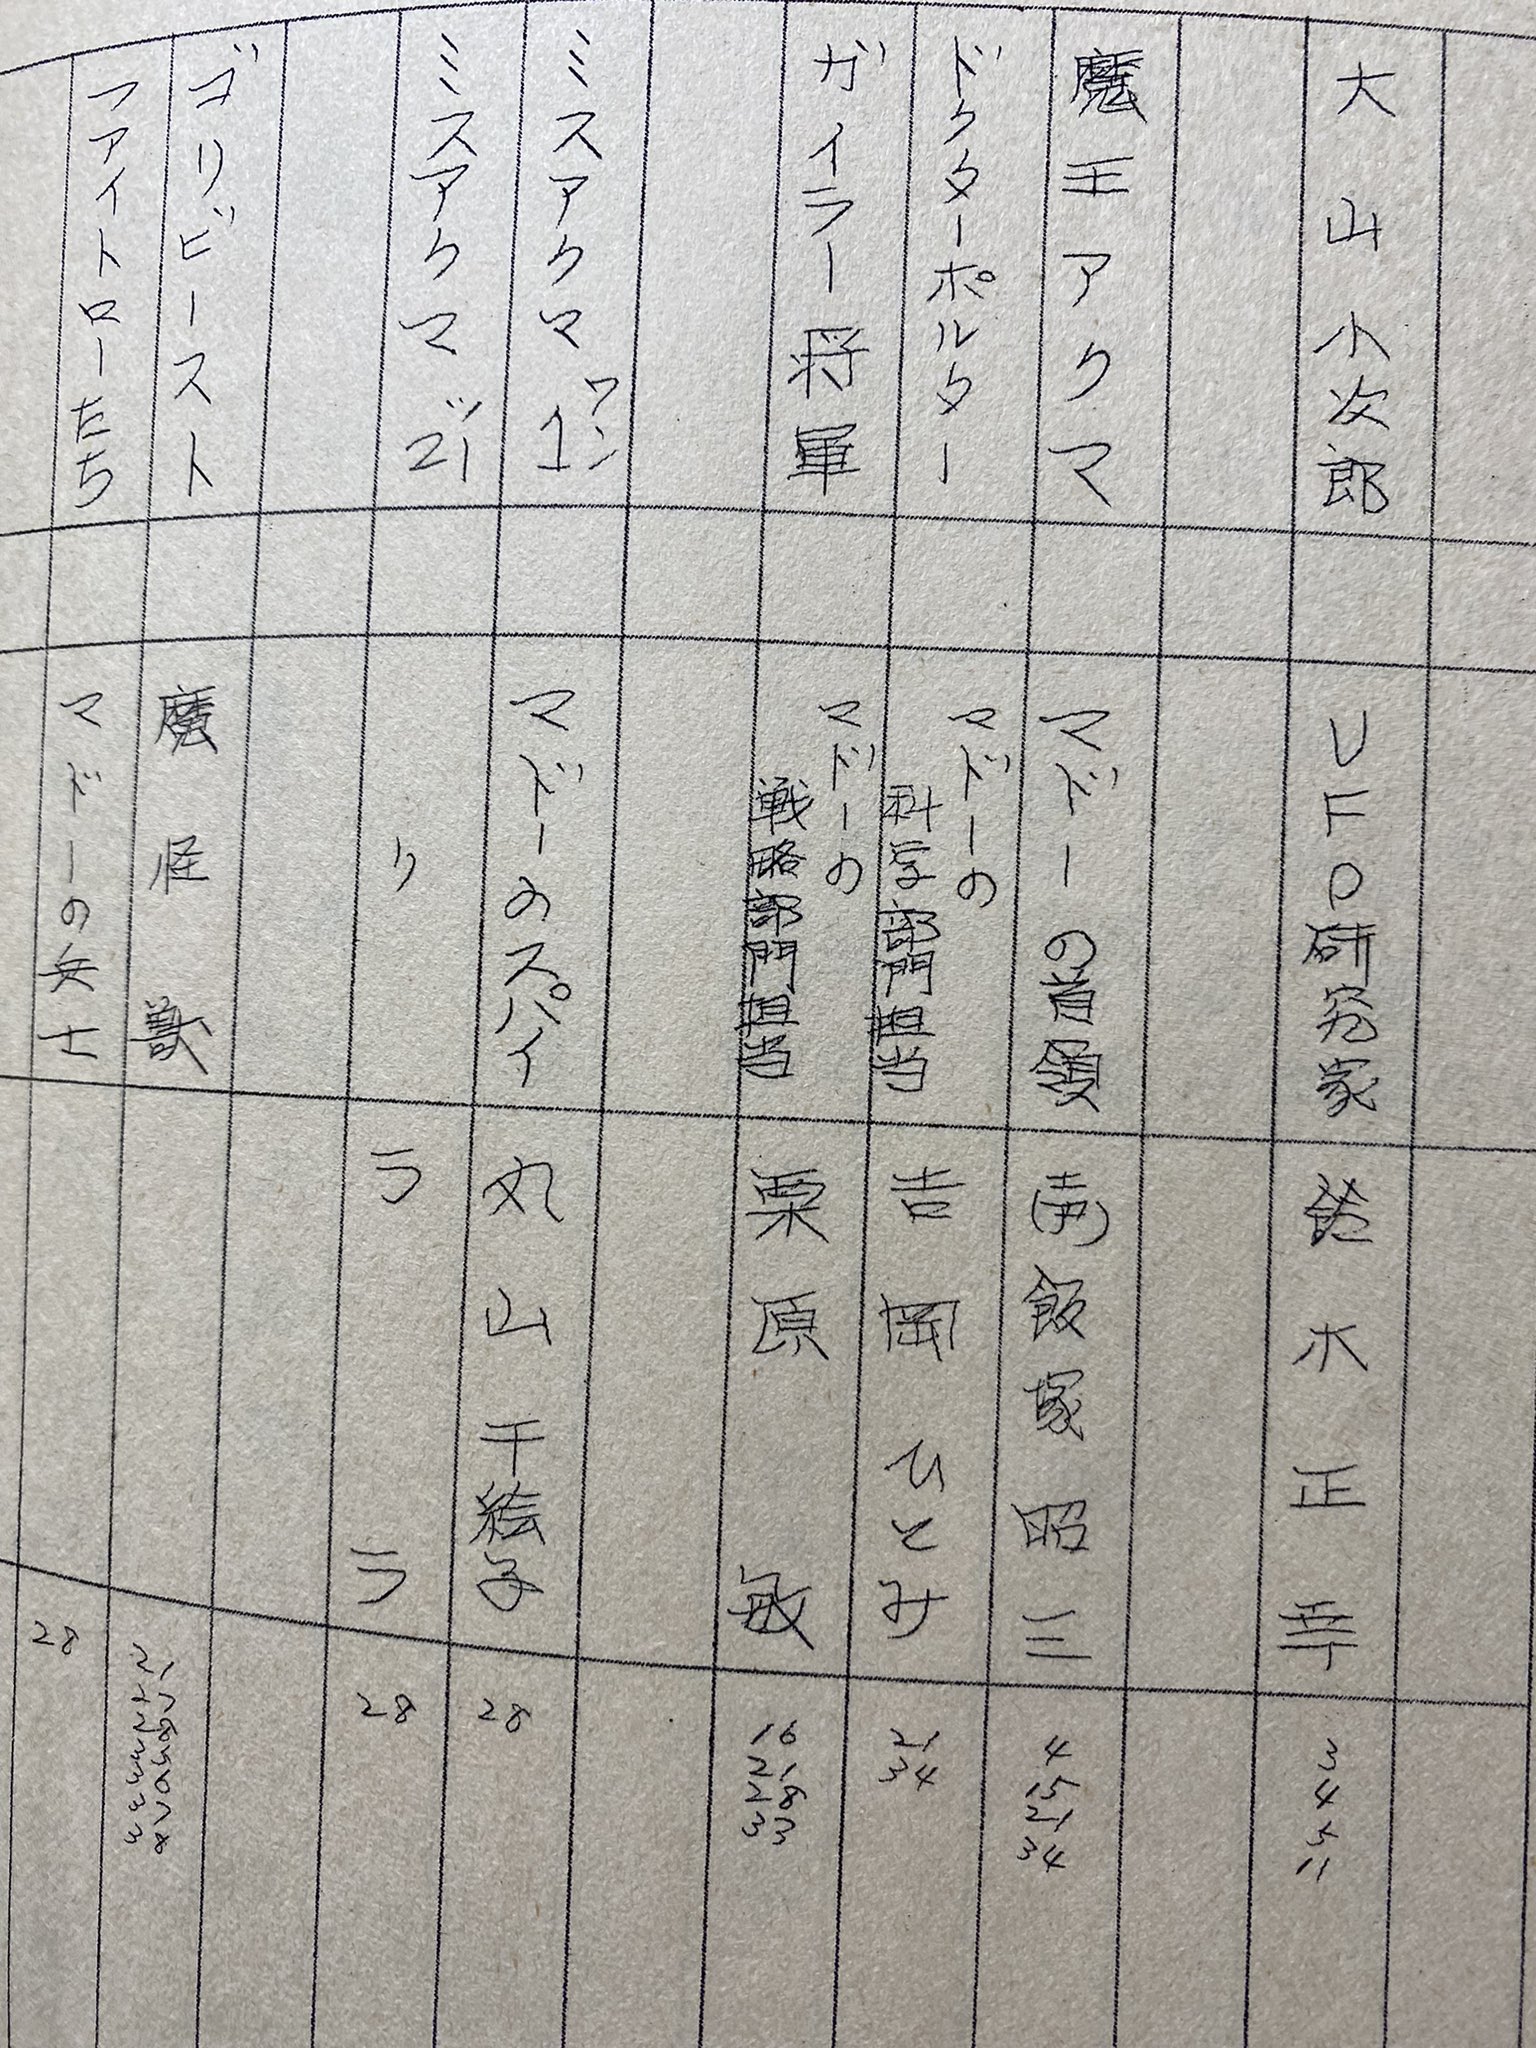 大山小次郎 UFO研究家 鈴木正幸 3 4 5 11
魔王アクマ マドーの首領 (声)飯塚昭三 4 15 21 34
ドクターポルター マドーの科学部門担当 吉岡ひとみ 21 34
ガイラー将軍 マドーの戦略部門担当 栗原敏 16 21 28 33
ミスアクマ1 ワン マドーのスパイ 丸山千絵子 28
ミスアクマ2 ツー 〃 ララ 28
ゴリビースト 魔怪獣
ファイトローたち マドーの兵士 28